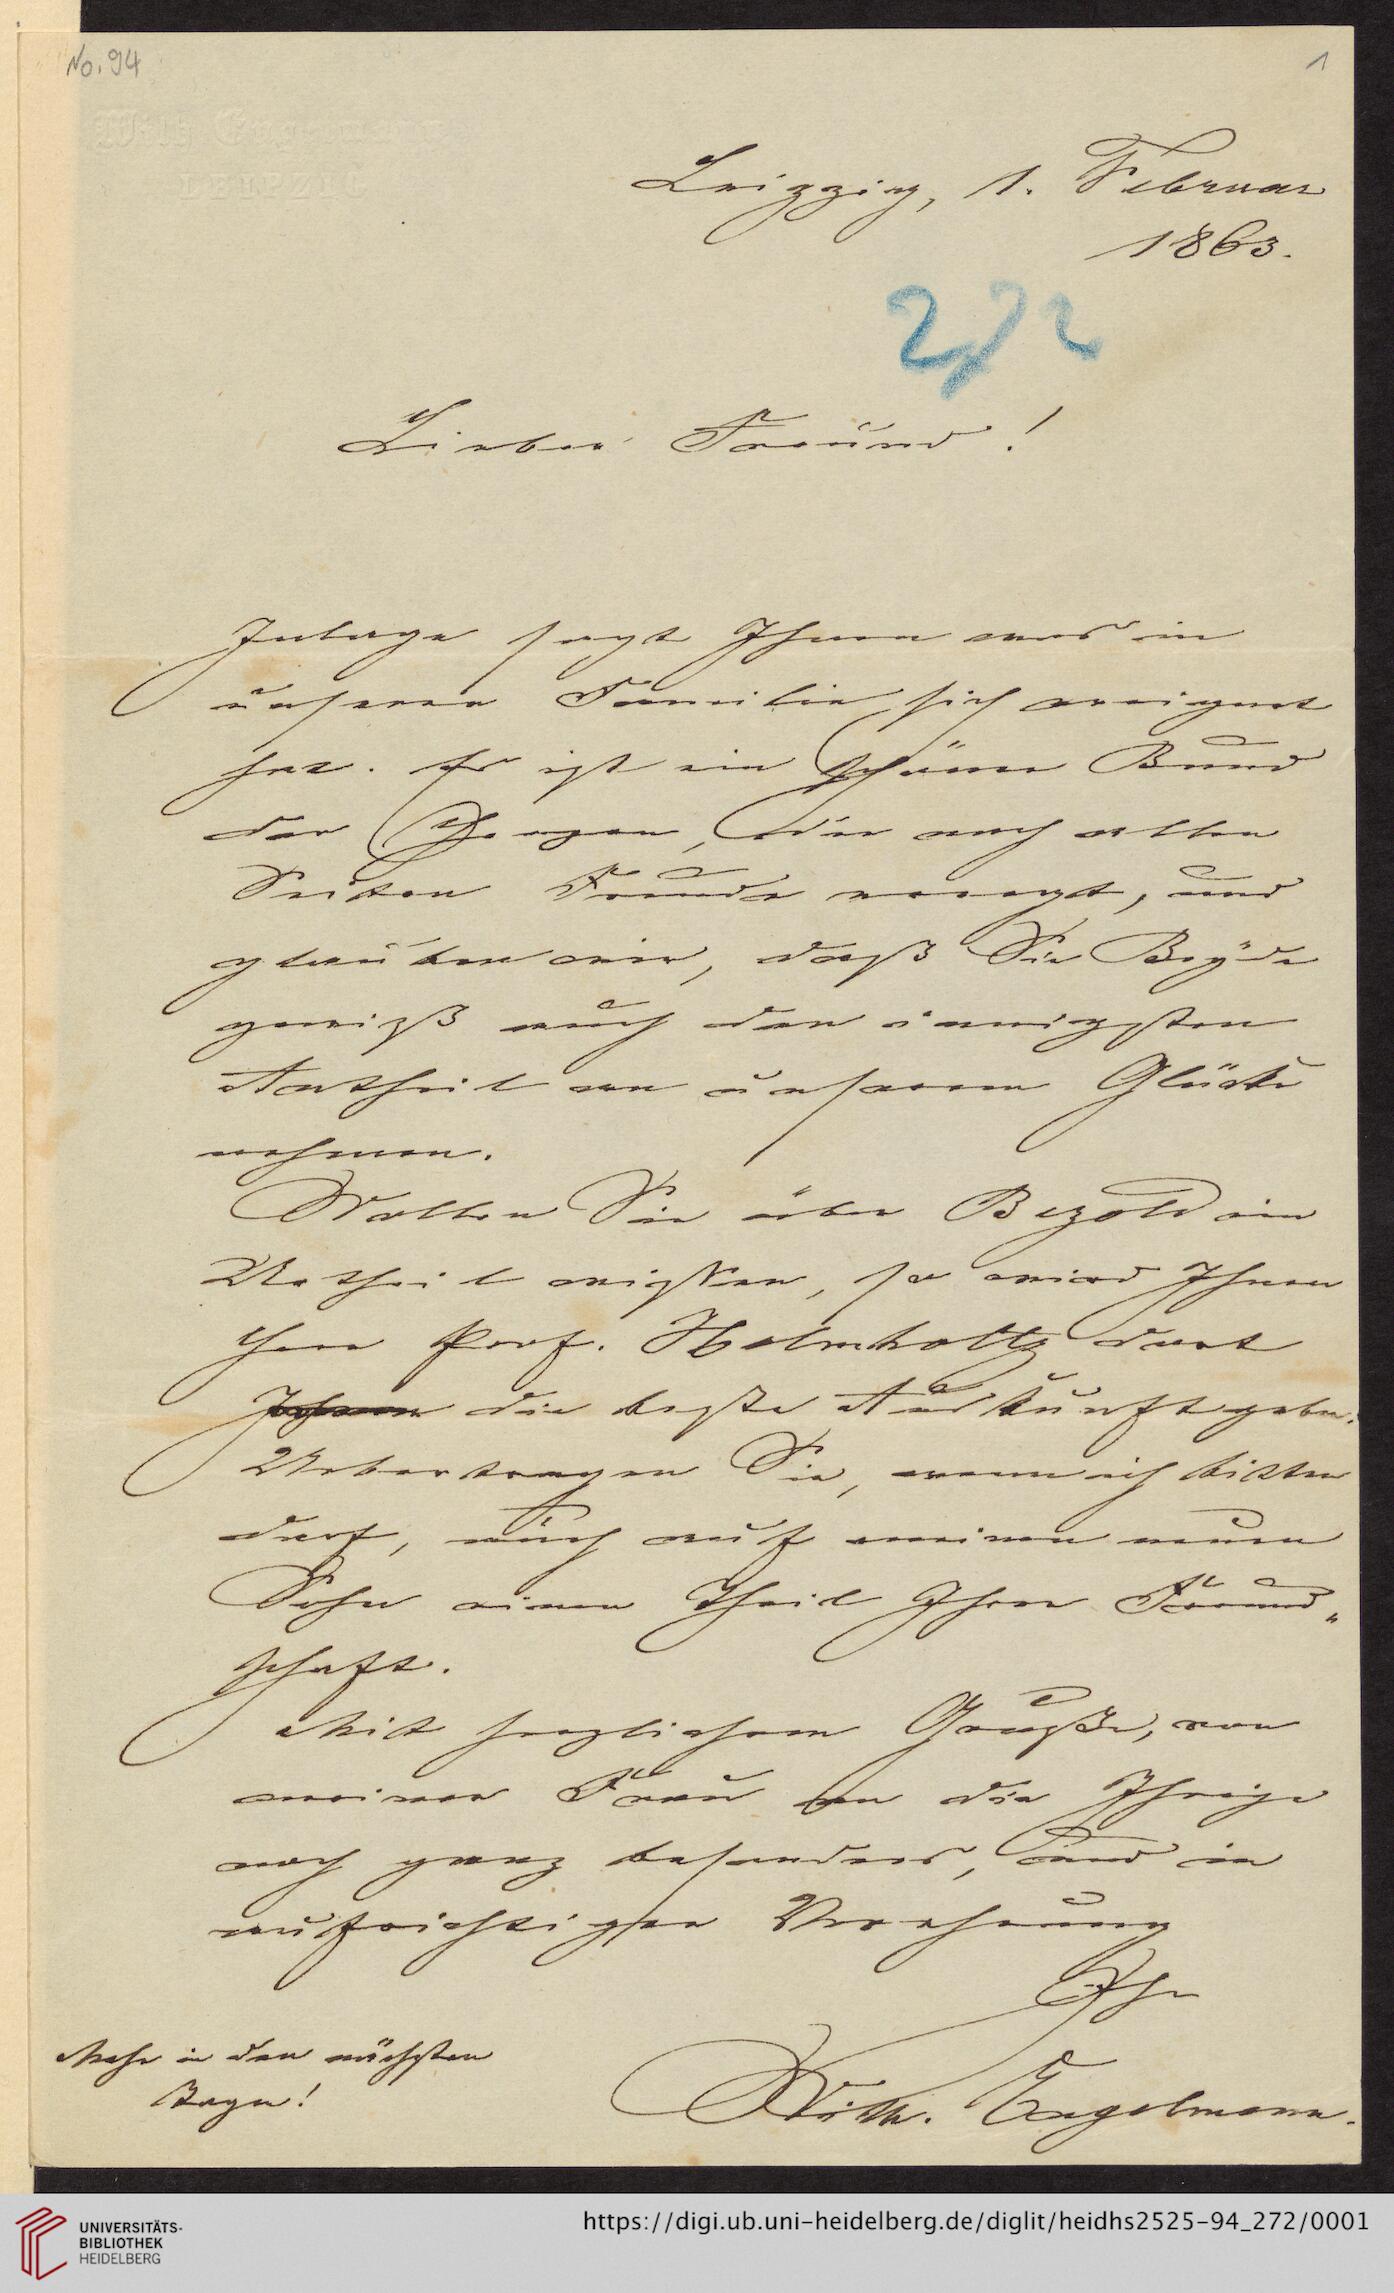 No. 94
1
Wilh. Engelmann
LEIPZIG
Leipzig, 1. Februar
1863.
272
Lieber Freund!
Inlage sagt Ihnen was in
unserer Familie sich ereignet
hat. Es ist ein schöner Bund
der Herzen, der nach allen
Seiten Freude erregt, und
glauben wir, daß Sie Beÿde
gewiß auch den innigsten
Antheil an unserem Glücke
nehmen.
Wollen Sie über Bezold ein
Urtheil wissen, so wird Ihnen
Herr Prof. Helmholtz dort
Ihnen die beste Auskunft geben.
Uebertragen Sie, wenn ich bitten
darf, auch auf meinen neuen
Sohn einen Theil Ihrer Freund„
schaft.
Mit herzlichem Gruße, von
meiner Frau an die Ihrige
noch ganz besonders, und in
aufrichtigster Verehrung
Ihr
Wilh. Engelmann.
Mehr in den nächsten
Tagen!
UNIVERSITÄTS-
BIBLIOTHEK
HEIDELBERG
https://digi.ub.uni-heidelberg.de/diglit/heidhs2525-94_272/0001